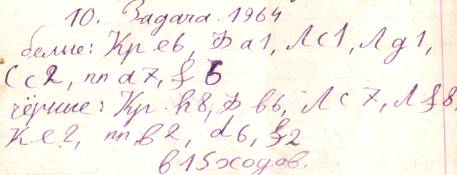 10. Задача. 1964
белые: Кр e6, Ф a1, Л c1, Л g1,
С c2, пп d7, f6
чёрные: Кр. h8, Ф b6, Л c7, Л f8,
К e2, пп b2, d6, f2
в 15 ходов.